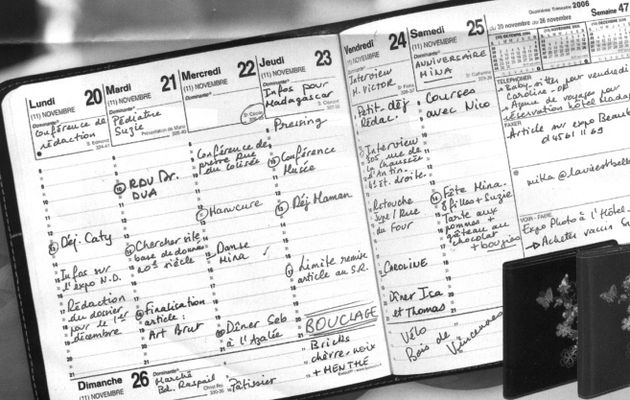 Quatrième Trimestre 2006
du 20 novembre au 26 novembre
Semaine 47
Lundi 20
(11) NOVEMBRE
Dominante
Conférence de
rédaction
S. Edmond
Déj. Caty
Infos sur
l'expo N.D.
Rédaction
du dossier
pour le 1er
décembre
Mardi 21
(11) NOVEMBRE
Dominante
Pédiatre
Suzie
Présentation de Marie
RDV Dr.
DUA
Chercher site
base de données
20e siècle
Finalisation
article :
Art Brut
Mercredi 22
(11) NOVEMBRE
Dominante
Ste Cécile
Conférence de
presse Rue
du Colisée
Manucure
Danse
Mina
Dîner Seb
à l'Azalée
Jeudi 23
(11) NOVEMBRE
Dominante
Infos pour
Madagascar
S. Clément
Pressing
Conférence
Musée
Déj Maman
Limite remise
article au S.R.
BOUCLAGE
Bricks
chèvre, noix
+ MENTHE
Vendredi 24
(11) NOVEMBRE
Dominante
Interview
H. Victor
Ste Flora
Petit-déj
Rédac.
Interview
rue de
la chaussée
d'Antin
Et. droite.
Retouche
Rue
du Four
CAROLINE
Dîner Isa
et Thomas
Vélo
Bois de
Vincennes
Samedi 25
(11) NOVEMBRE
Dominante
ANNIVERSAIRE
MINA
Ste Catherine
Courses
avec Nico
Fête Mina.
filles + Suzie
Tarte aux
pommes +
gâteau au
chocolat
+ bougies
TELEPHONER
Baby-sitter pour vendredi
Caroline
Agence de voyages pour
réservation hôtel Mada
FAXER
Article sur expo
d 4561 11 69
mika@lavieestbelle
VOIR - FAIRE
Expo Photo à l'Hôtel
→ Acheter
Dimanche 26
(11) NOVEMBRE
Dominante
Marché
Bd. Raspail
Christ Roi
Pâtissier